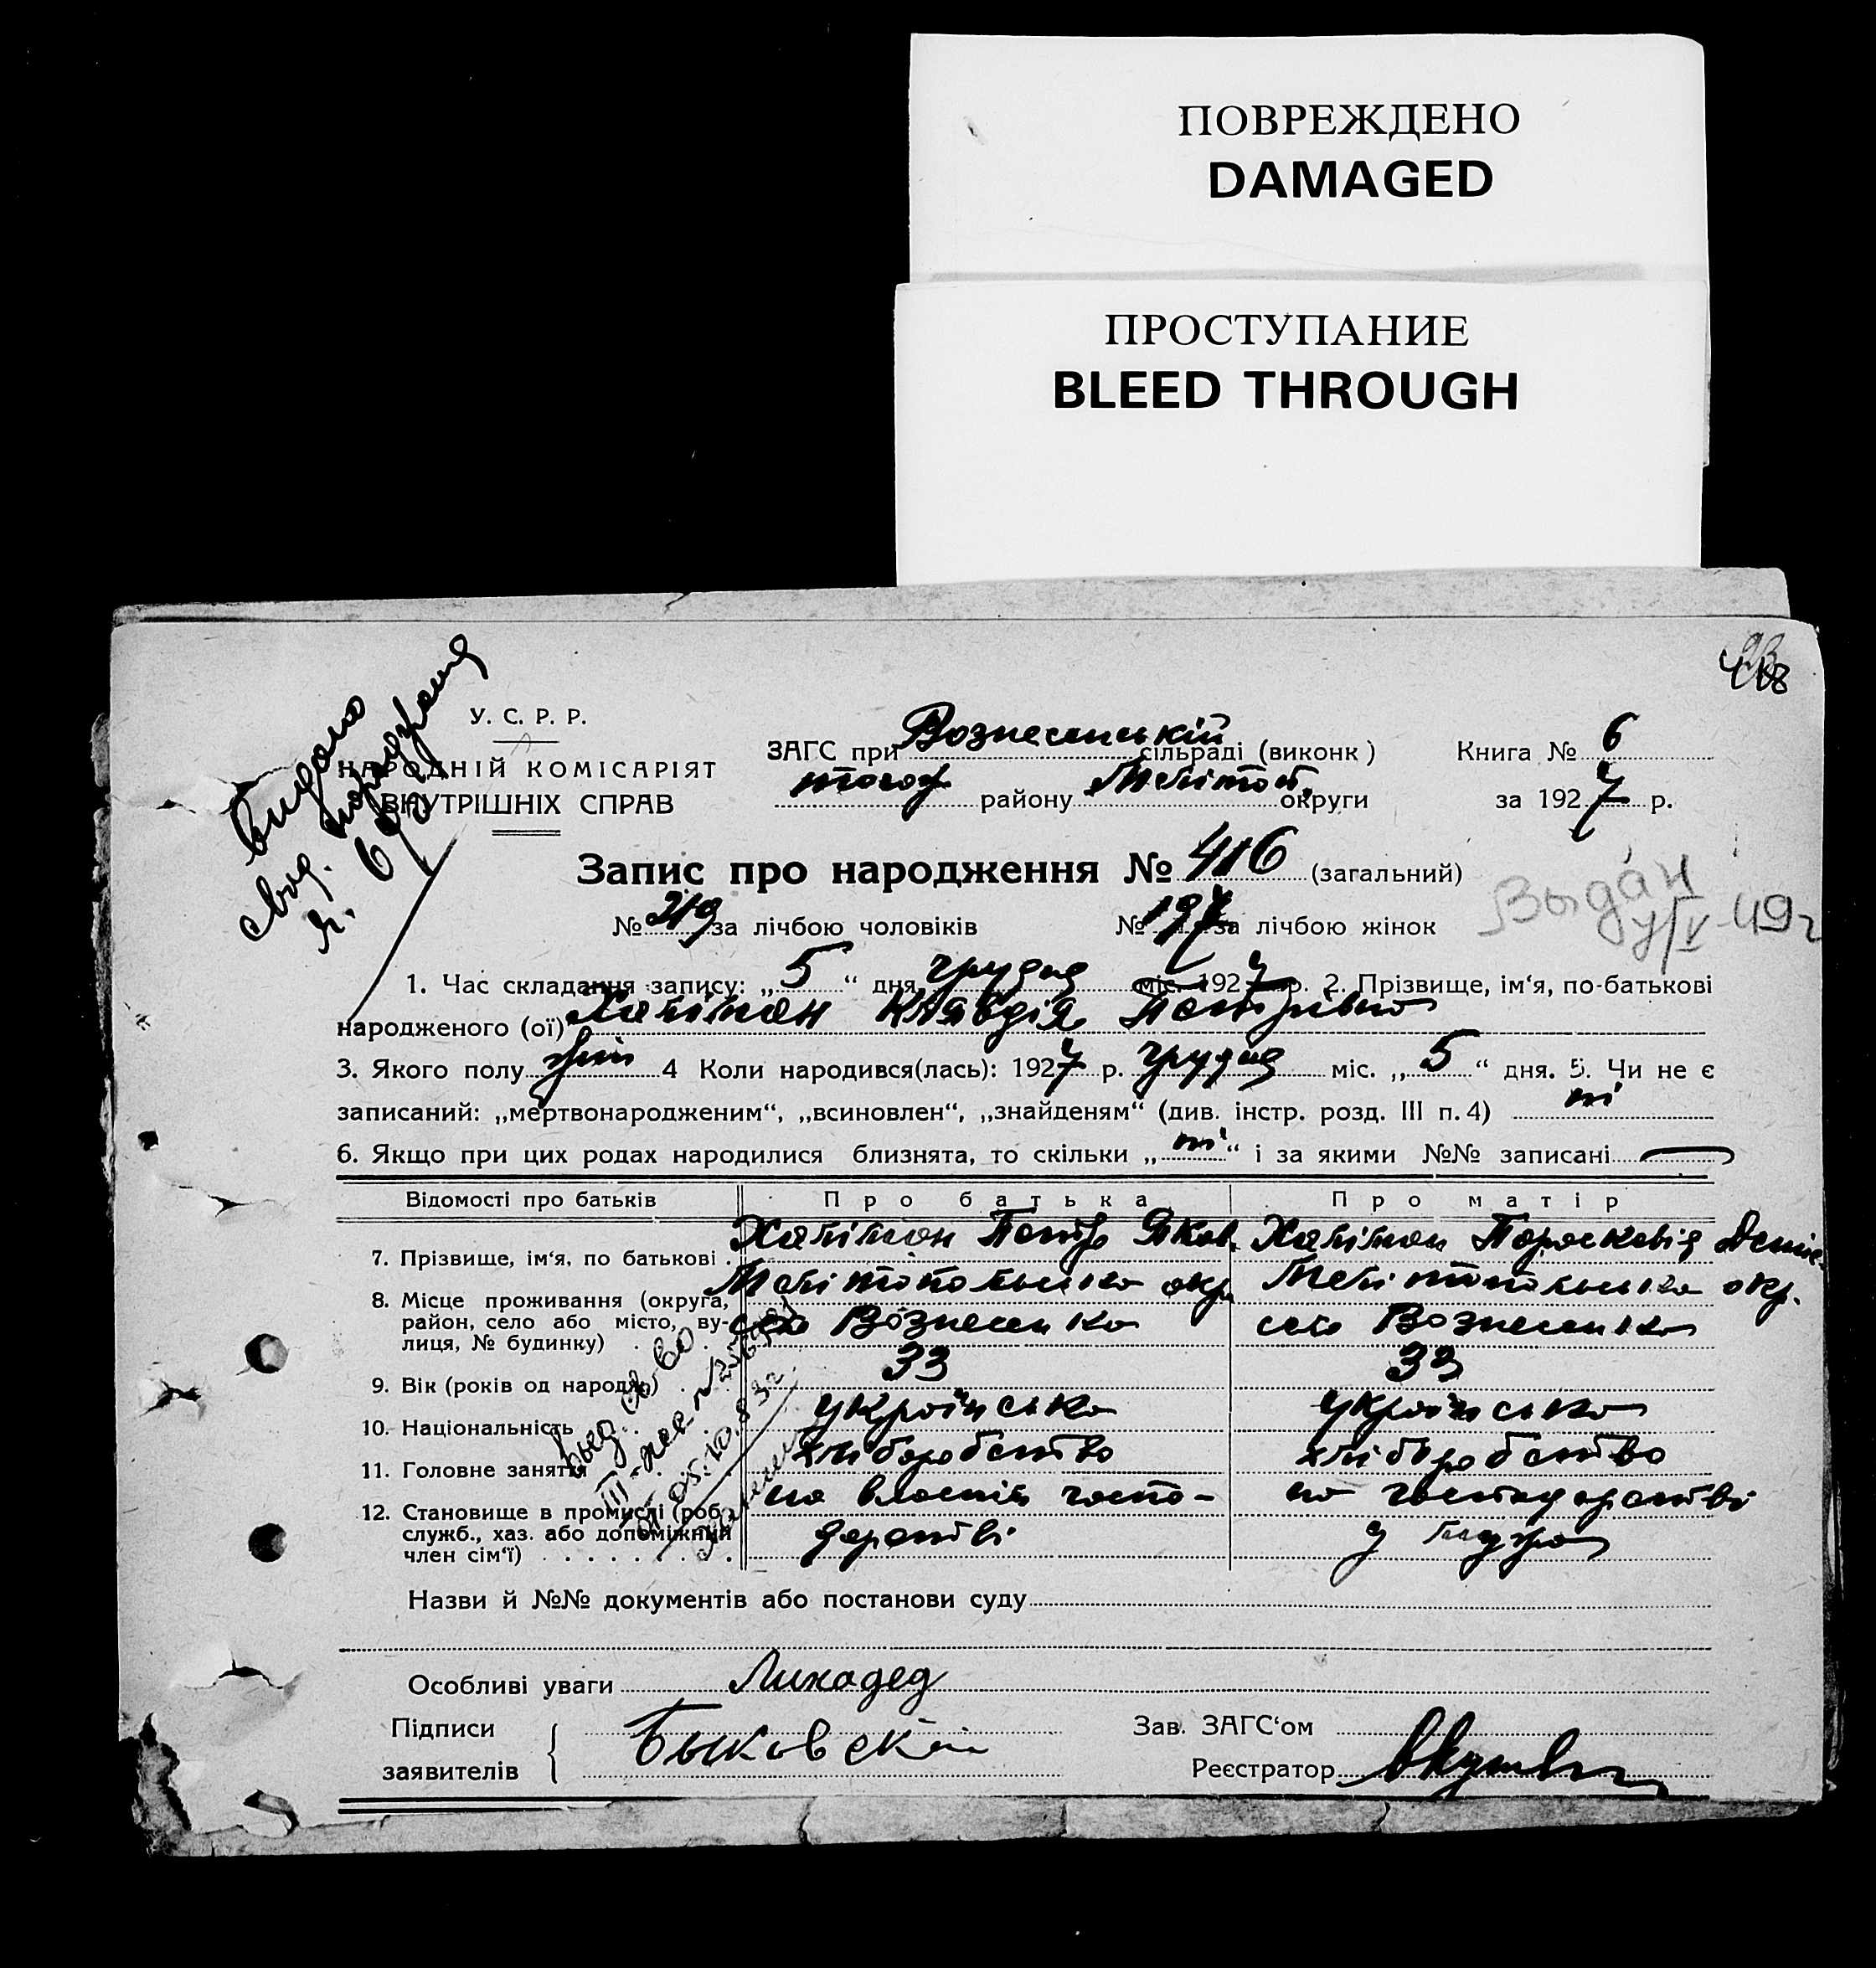 ПОВРЕЖДЕНО
DAMAGED
ПРОСТУПАНИЕ
BLEED THROUGH
У. С. Р. Р.
НАРОДНІЙ КОМІСАРІЯТ
ВНУТРІШНІХ СПРАВ
ЗАГС при Вознесенській сільраді (виконк)
району Меліт окр. округи
Книга № 6
за 1927 р.
Запис про народження № 416 (загальний)
№ 219 за лічбою чоловіків № 197 за лічбою жінок
Выдан
У/V-49г
1. Час складання запису: „5“ дня грудня міс. 1927 р. 2. Прізвище, ім‘я, по-батькові
народженого (ої) Халімон Клавдія Петрівна
3. Якого полу жін 4 Коли народився(лась): 1927 р. грудня міс. „5“ дня. 5. Чи не є
записаний: „мертвонародженим“, „всиновлен“, „знайденям“ (див. інстр. розд. III п. 4) ні
6. Якщо при цих родах народилися близнята, то скільки „ні“ і за якими №№ записані —
Відомості про батьків Про батька Про матір
7. Прізвище, ім‘я, по батькові . Халімон Петро Яков. Халімон Парасковія Денис
8. Місце проживання (округа, Мелітопольська окр. Мелітопольська окр.
район, село або місто, ву- село Вознесенка село Вознесенка
лиця, № будинку) . .
9. Вік (років од народж) . . 33 33
10. Національність . . . українська українська
11. Головне заняття . . . хліборобство хліборобство
12. Становище в промислі (роб. на власнім госпо- на господарстві
служб., хаз. або допоміжний дарстві у мужа
член сім‘ї) . . . . . . . . .
Назви й №№ документів або постанови суду
Особливі уваги Лиходед
Підписи Быковский Зав. ЗАГС‘ом
заявителів Реєстратор